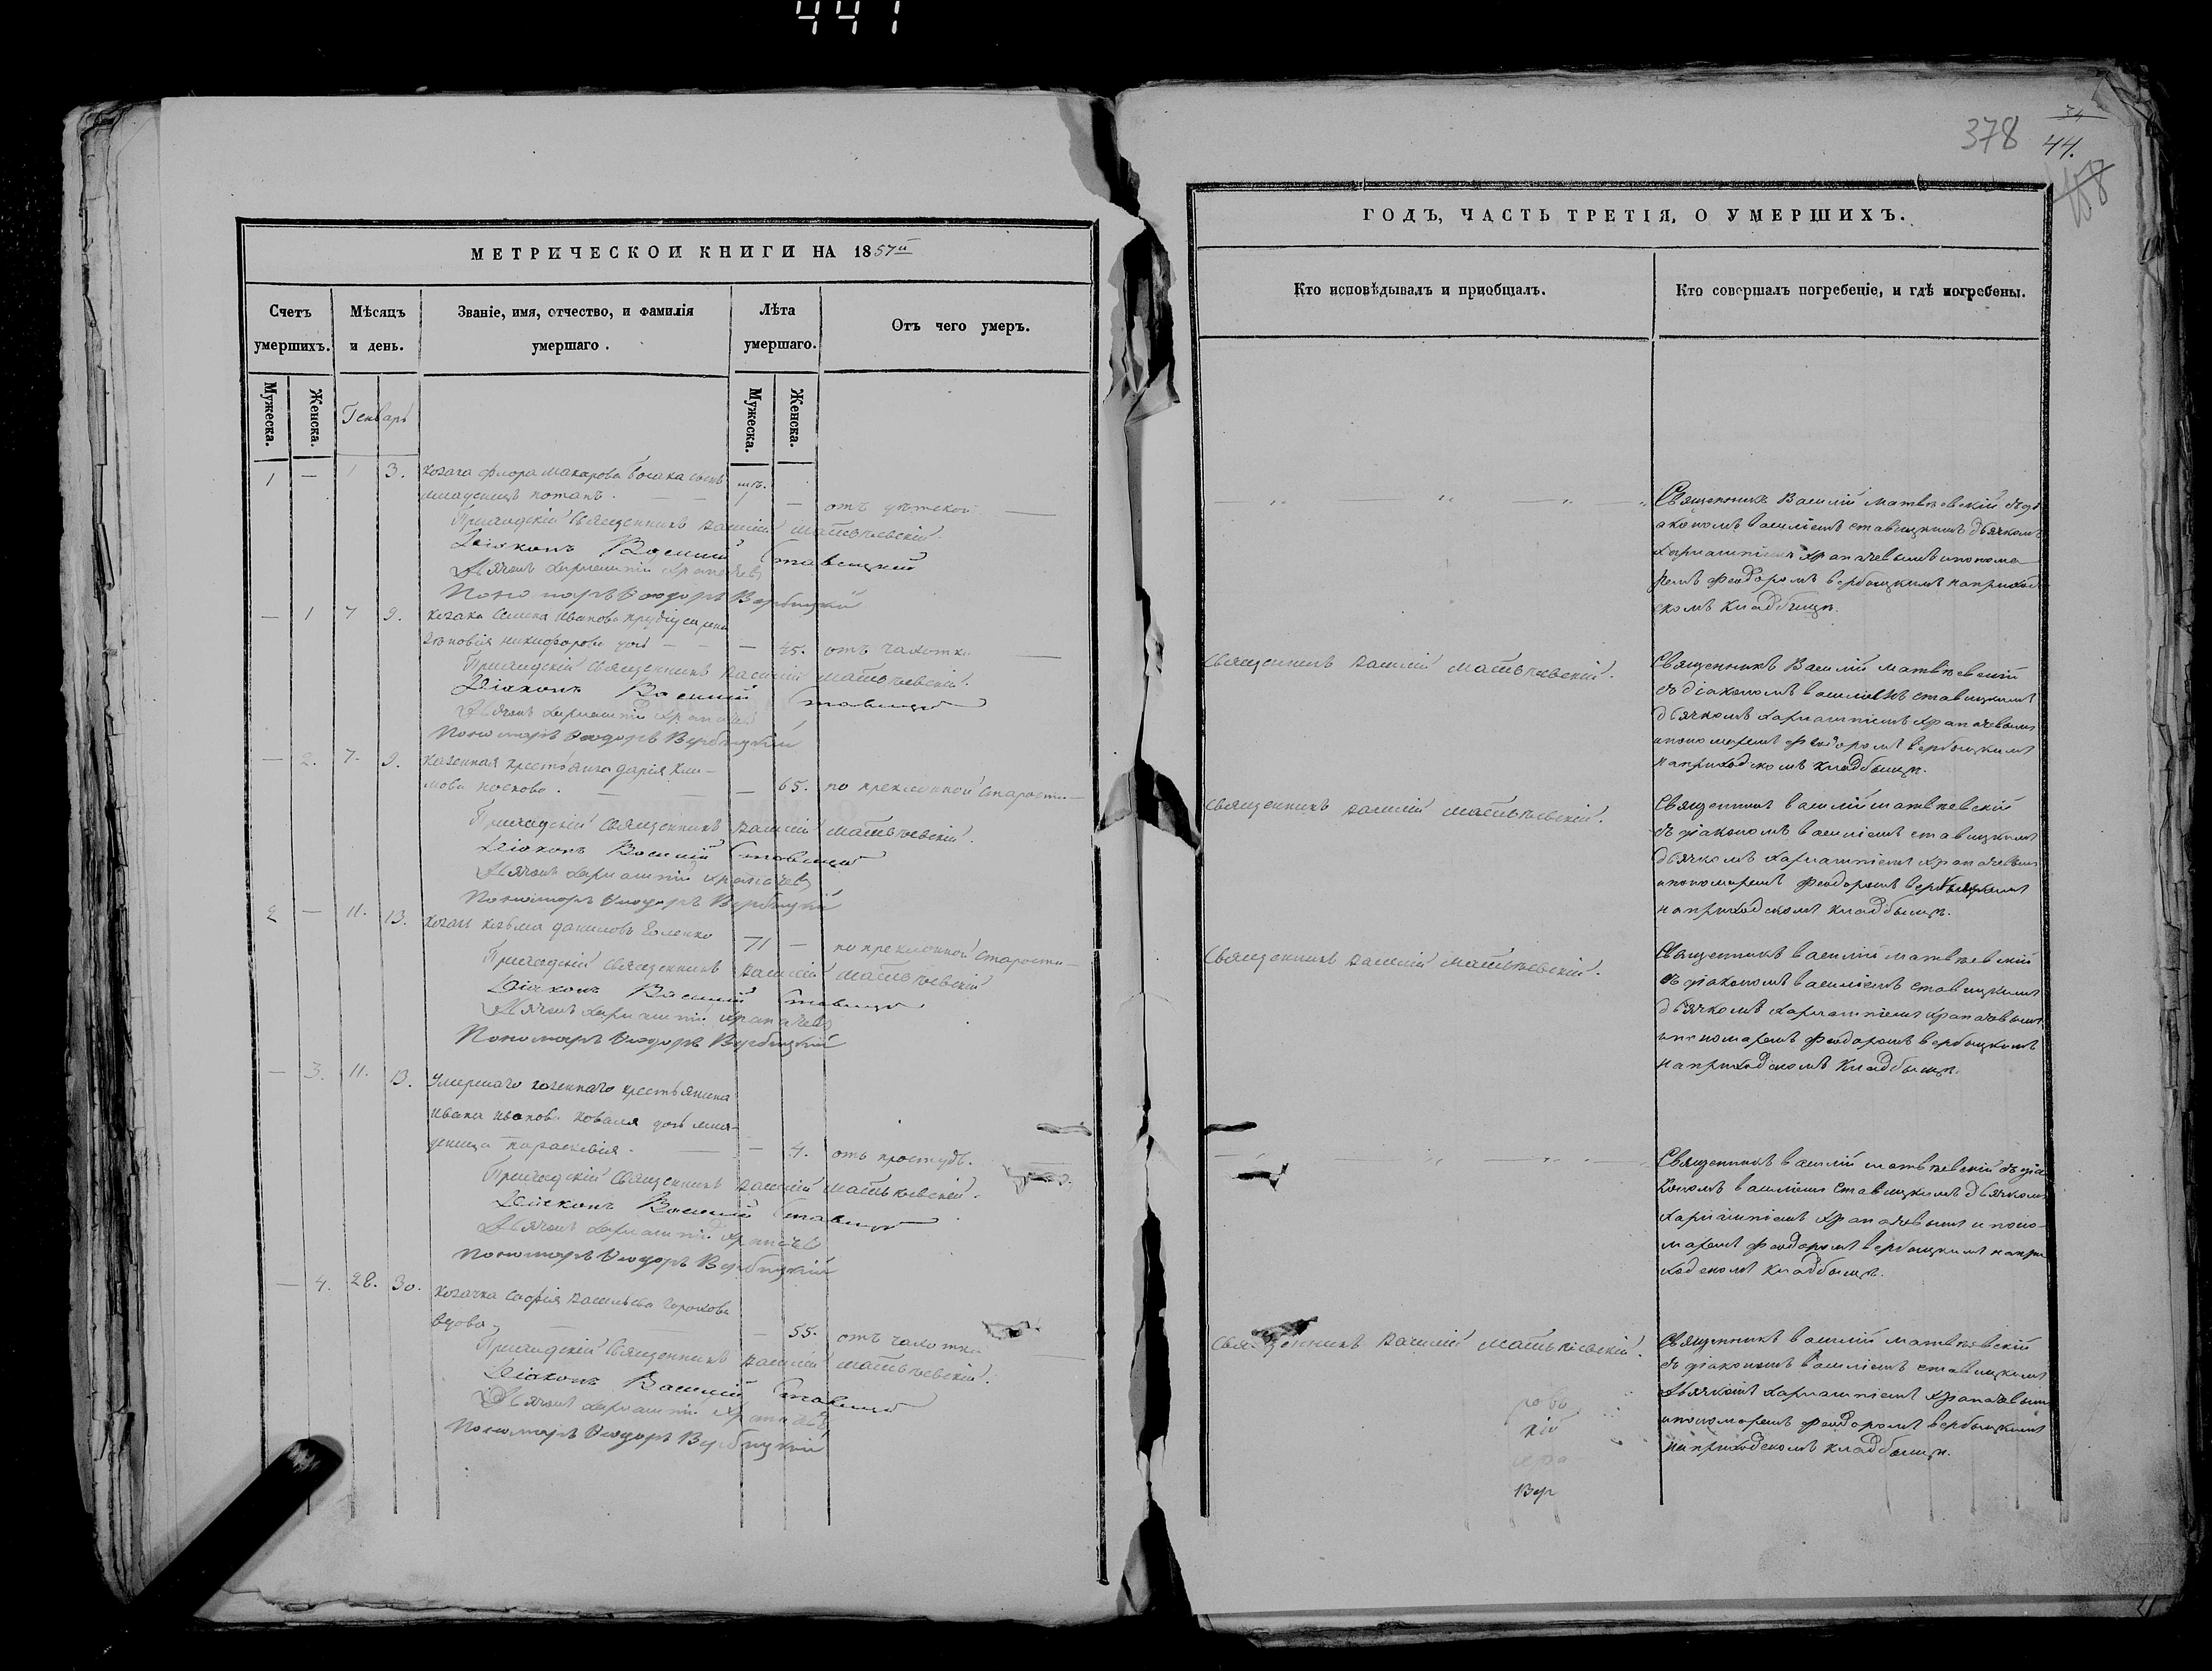 441
МЕТРИЧЕСКОЙ КНИГИ НА 1857й
Счетъ умершихъ.
Мѣсяцъ и день.
Званіе, имя, отчество, и фамилія умершаго.
Лѣта умершаго.
Отъ чего умеръ.
Мужеска.
Женска.
Генварь
Мужеска.
Женска.
1 — 1 3. козака Флора Макарова сынъ
младенецъ Потапъ. — —
Приходскій Священникъ Василій Матвѣевскій.
Діаконъ Василій Ставицкій
Дьячокъ Харлампій Храпачев
Пономарь Ѳеодоръ Вербицкій
— 1 7 9. козака Семена Иванова жена
Никифорова — — 45. отъ чахотки —
Приходскій Священникъ Василій Матвѣевскій.
Діаконъ Василій Ставицкій
Дьячокъ Харлампій Храпачев
Пономарь Ѳеодоръ Вербицкій
— 2. 7. 9. казенная крестьянка Дарія Кли-
мова — — 65. по преклонной старости —
Приходскій Священникъ Василій Матвѣевскій.
Діаконъ Василій Ставицкій
Дьячокъ Харлампій Храпачев
Пономарь Ѳеодоръ Вербицкій
2 — 11. 13. козакъ Козьма Даниловъ
71 — по преклонной старости —
Приходскій Священникъ Василій Матвѣевскій
Діаконъ Василій Ставицкій
Дьячокъ Харлампій Храпачев
Пономарь Ѳеодоръ Вербицкій
— 3. 11. 13. умершаго казеннаго крестьянина
Ивана Иванова Коваля дочь мла-
деница Параскевія. — — 4. отъ простуды.
Приходскій Священникъ Василій Матвѣевскій.
Діаконъ Василій Ставицкій
Дьячокъ Харлампій Храпачев
Пономарь Ѳеодоръ Вербицкій
— 4. 28. 30. козачка Софія Васильева
вдова — — 55. отъ чахотки
Приходскій Священникъ Василій Матвѣевскій.
Діаконъ Василій Ставицкій
Дьячокъ Харлампій Храпачев
Пономарь Ѳеодоръ Вербицкій
378
44.
ГОДЪ, ЧАСТЬ ТРЕТІЯ, О УМЕРШИХЪ.
Кто исповѣдывалъ и пріобщалъ.
Кто совершалъ погребеніе, и гдѣ погребены.
Священникъ Василій Матвѣевскій съ ді-
акономъ Василіемъ Ставицкимъ дьячкомъ
Харлампіемъ Храпачевымъ и понома-
ремъ Феодоромъ Вербицкимъ на приход-
скомъ кладбищѣ.
Священникъ Василій Матвѣевскій.
Священникъ Василій Матвѣевскій
съ діакономъ Василіемъ Ставицкимъ
дьячкомъ Харлампіемъ Храпачевымъ
и пономаремъ Феодоромъ Вербицкимъ
на приходскомъ кладбищѣ.
Священникъ Василій Матвѣевскій.
Священникъ Василій Матвѣевскій
съ діакономъ Василіемъ Ставицкимъ
дьячкомъ Харлампіемъ Храпачевымъ
и пономаремъ Феодоромъ Вербицкимъ
на приходскомъ кладбищѣ.
Священникъ Василій Матвѣевскій.
Священникъ Василій Матвѣевскій
съ діакономъ Василіемъ Ставицкимъ
дьячкомъ Харлампіемъ Храпачевымъ
и пономаремъ Феодоромъ Вербицкимъ
на приходскомъ кладбищѣ.
Священникъ Василій Матвѣевскій съ діа-
кономъ Василіемъ Ставицкимъ дьячкомъ
Харлампіемъ Храпачевымъ и поно-
маремъ Феодоромъ Вербицкимъ на при-
ходскомъ кладбищѣ.
Священникъ Василій Матвѣевскій.
Священникъ Василій Матвѣевскій
съ діакономъ Василіемъ Ставицкимъ
дьячкомъ Харлампіемъ Храпачевымъ
и пономаремъ Феодоромъ Вербицкимъ
на приходскомъ кладбищѣ.
кій
Вер